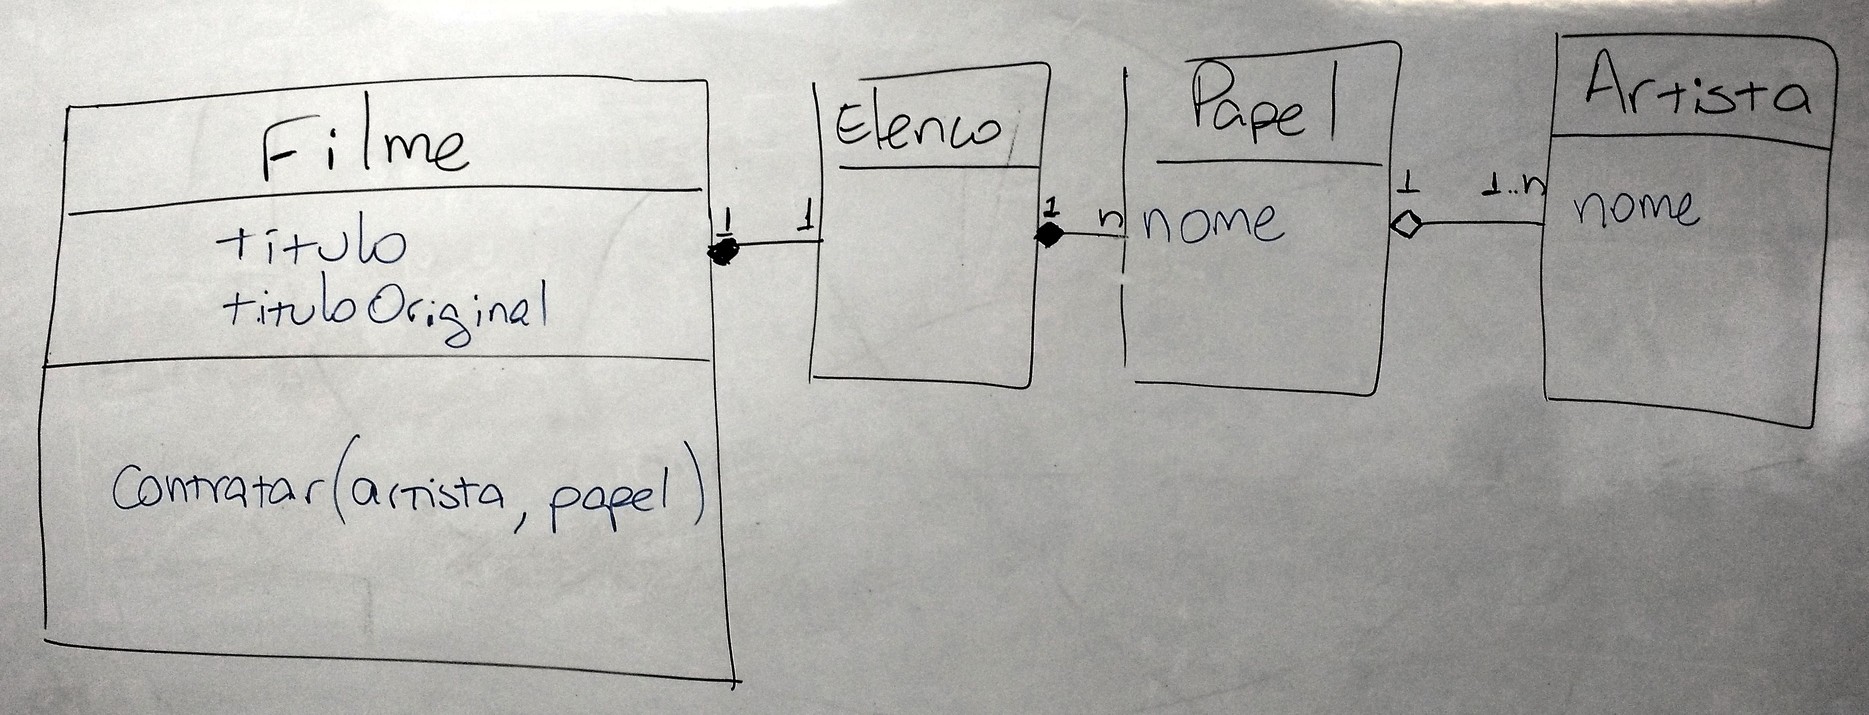 Filme
titulo
tituloOriginal
Contratar(artista, papel)
1
1
Elenco
1
n
Papel
nome
1
1..n
Artista
nome